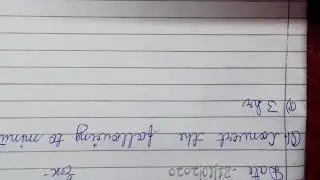 Date - 21/10/2020
Ex:-
Q1. Convert the following to minu
① 3 hr